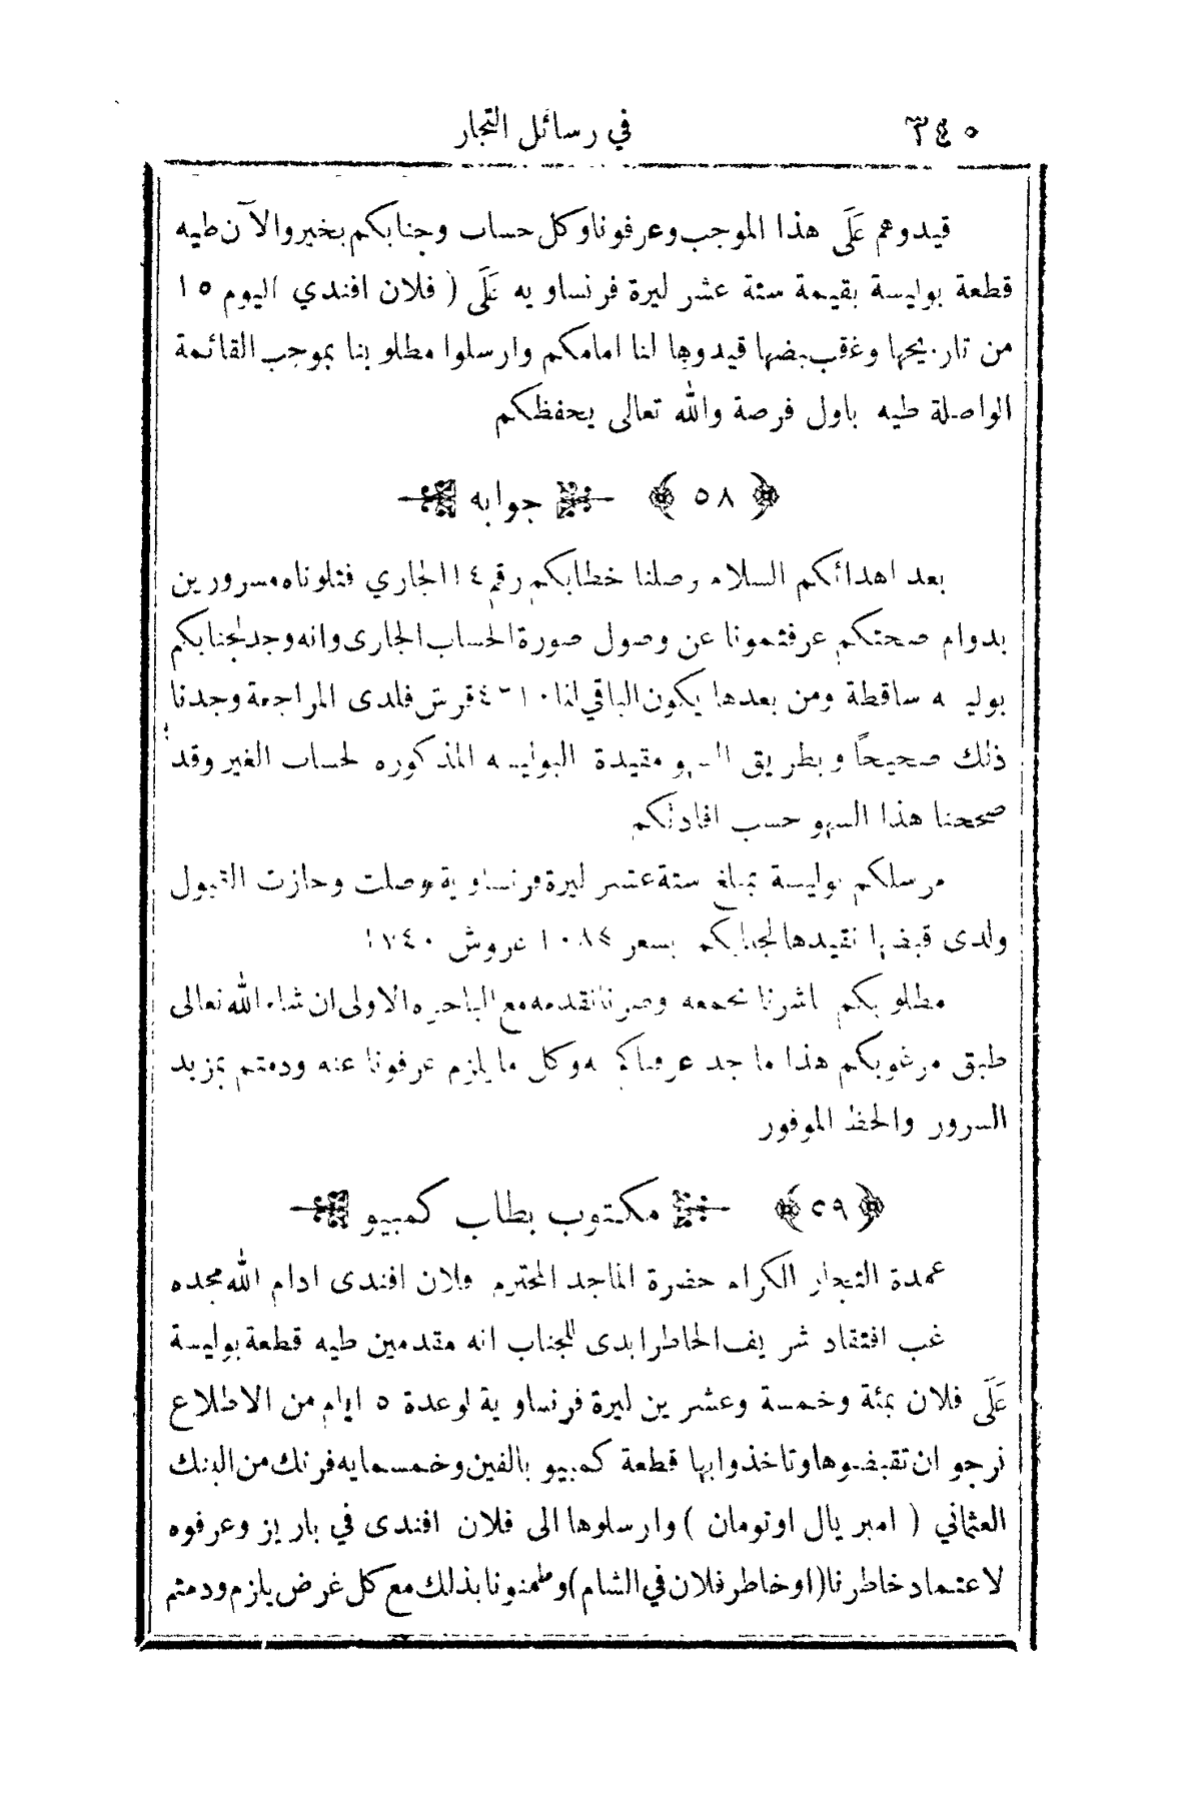 ٣٤٠
في رسائل التجار
قيدوهم عَلَى هذا الموجب وعرفونا وكل حساب وجنابكم بخير والآن طيه
قطعة بوليسة بقيمة ستة عشر ليرة فرنساويه عَلَى ( فلان افندي اليوم ١٥
من تاريخها وغقب بضها قيدوها لنا امامكم وارسلوا مطلوبنا بموجب القائمة
الواصلة طيه باول فرصة والله تعالى يحفظكم
﴿ ٥٨ ﴾ جوابه
بعد اهدائكم السلام وصلنا خطابكم رقم ١٤ الجاري فتلوناه مسرورين
بدوام صحتكم عرفتمونا عن وصول صورة الحساب الجارى وانه وجد لجنابكم
ساقطة ومن بعدها يكون الباقي لنا قرش فلدى المراجعة وجدنا
ذلك صحيحاً وبطريق السهو مقيدة البوليسه المذكوره لحساب الغير وقد
صححنا هذا السهو حسب افادتكم
مرسلكم بوليسة بمبلغ ستة عشر ليرة فرنساوية وصلت وحازت القبول
ولدى قبضها نقيدها لجنابكم بسعر غروش ١٧٤٠
مطلوبكم اشرنا بجمعه وصرنا نقدمه مع الباخره الاولى ان شاء الله تعالى
طبق مرغوبكم هذا ما جد عرفناكم وكل ما يلزم عرفونا عنه ودمتم بمزيد
السرور والحظ الموفور
﴿ ٥٩ ﴾ مكتوب بطاب كمبيو
عمدة التجار الكرام حضرة الماجد المحترم فلان افندى ادام الله مجده
غب افتقاد شريف الخاطر ابدى للجناب انه مقدمين طيه قطعة بوليسة
عَلَى فلان بمئة وخمسة وعشرين ليرة فرنساوية لوعدة ٥ ايام من الاطلاع
نرجو ان تقبضوها وتاخذوا بها قطعة كمبيو بالفين وخمسمايه فرنك من البنك
العثماني ( امبريال اوتومان ) وارسلوها الى فلان افندى في باريز وعرفوه
لاعتماد خاطرنا ( او خاطر فلان في الشام ) وطمنونا بذلك مع كل غرض يلزم ودمتم